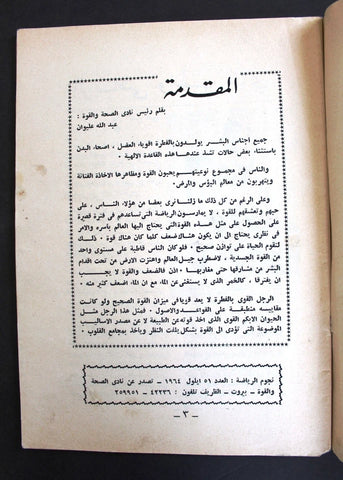 المقدمة
بقلم رئيس نادى الصحة والقوة :
عبد الله عليوان
جميع اجناس البشر يولدون بالفطرة اقوياء العقل ، اصحاء البدن
باستثناء بعض حالات تشذ عندها هذه القاعدة الالهية .
والناس فى مجموع نوعيتهم يحبون القوة ومظاهرها الاخاذة الفتانة
ويتهربون من معالم البؤس والمرض .
وعلى الرغم من كل ذلك ما زلنا نرى بعضا من هؤلاء الناس ، على
حبهم وتعشقهم للقوة ، لا يمارسون الرياضة التى تساعدهم فى فترة قصيرة
على الحصول على مثل هذه القوة التى يحتاج اليها العالم باسره والامر
فى نظرى يحتاج الى ان يكون هناك ضعف كما كان هناك قوة . ذلك
لتقوم الحياة على توازن صحيح . فلو كان الناس قاطبة على مستوى واحد
من القوة الجسدية ، لاضطرب جبل العالم واهتزت الارض من تحت اقدام
البشر من مشارقها حتى مغاربها . اذن فالضعف والقوة لا يجب
ان يفترقا ، كالخمر الذى لا يستغنى عن الماء، مع ان الماء، اضعف كثير منه .
الرجل القوى بالفطرة لا يعد قويا فى ميزان القوة الصحيح ولو كانت
مقاييسه منطبقة على القواعد والاصول . فمثل هذا الرجل مثل
الحيوان الابكم القوى الذى اخذ قوته عن الطبيعة لا عن مصدر الاساليب
الموضوعة التى تؤدى الى القوة بشكل يلفت النظر وياخذ بمجامع القلوب .
نجوم الرياضة : العدد ٥١ ايلول ١٩٦٤ - تصدر عن نادى الصحة
والقوة - بيروت - الظريف تلفون : ٤٢٢٣٦ - ٢٥٩٩٥١
- ٣ -